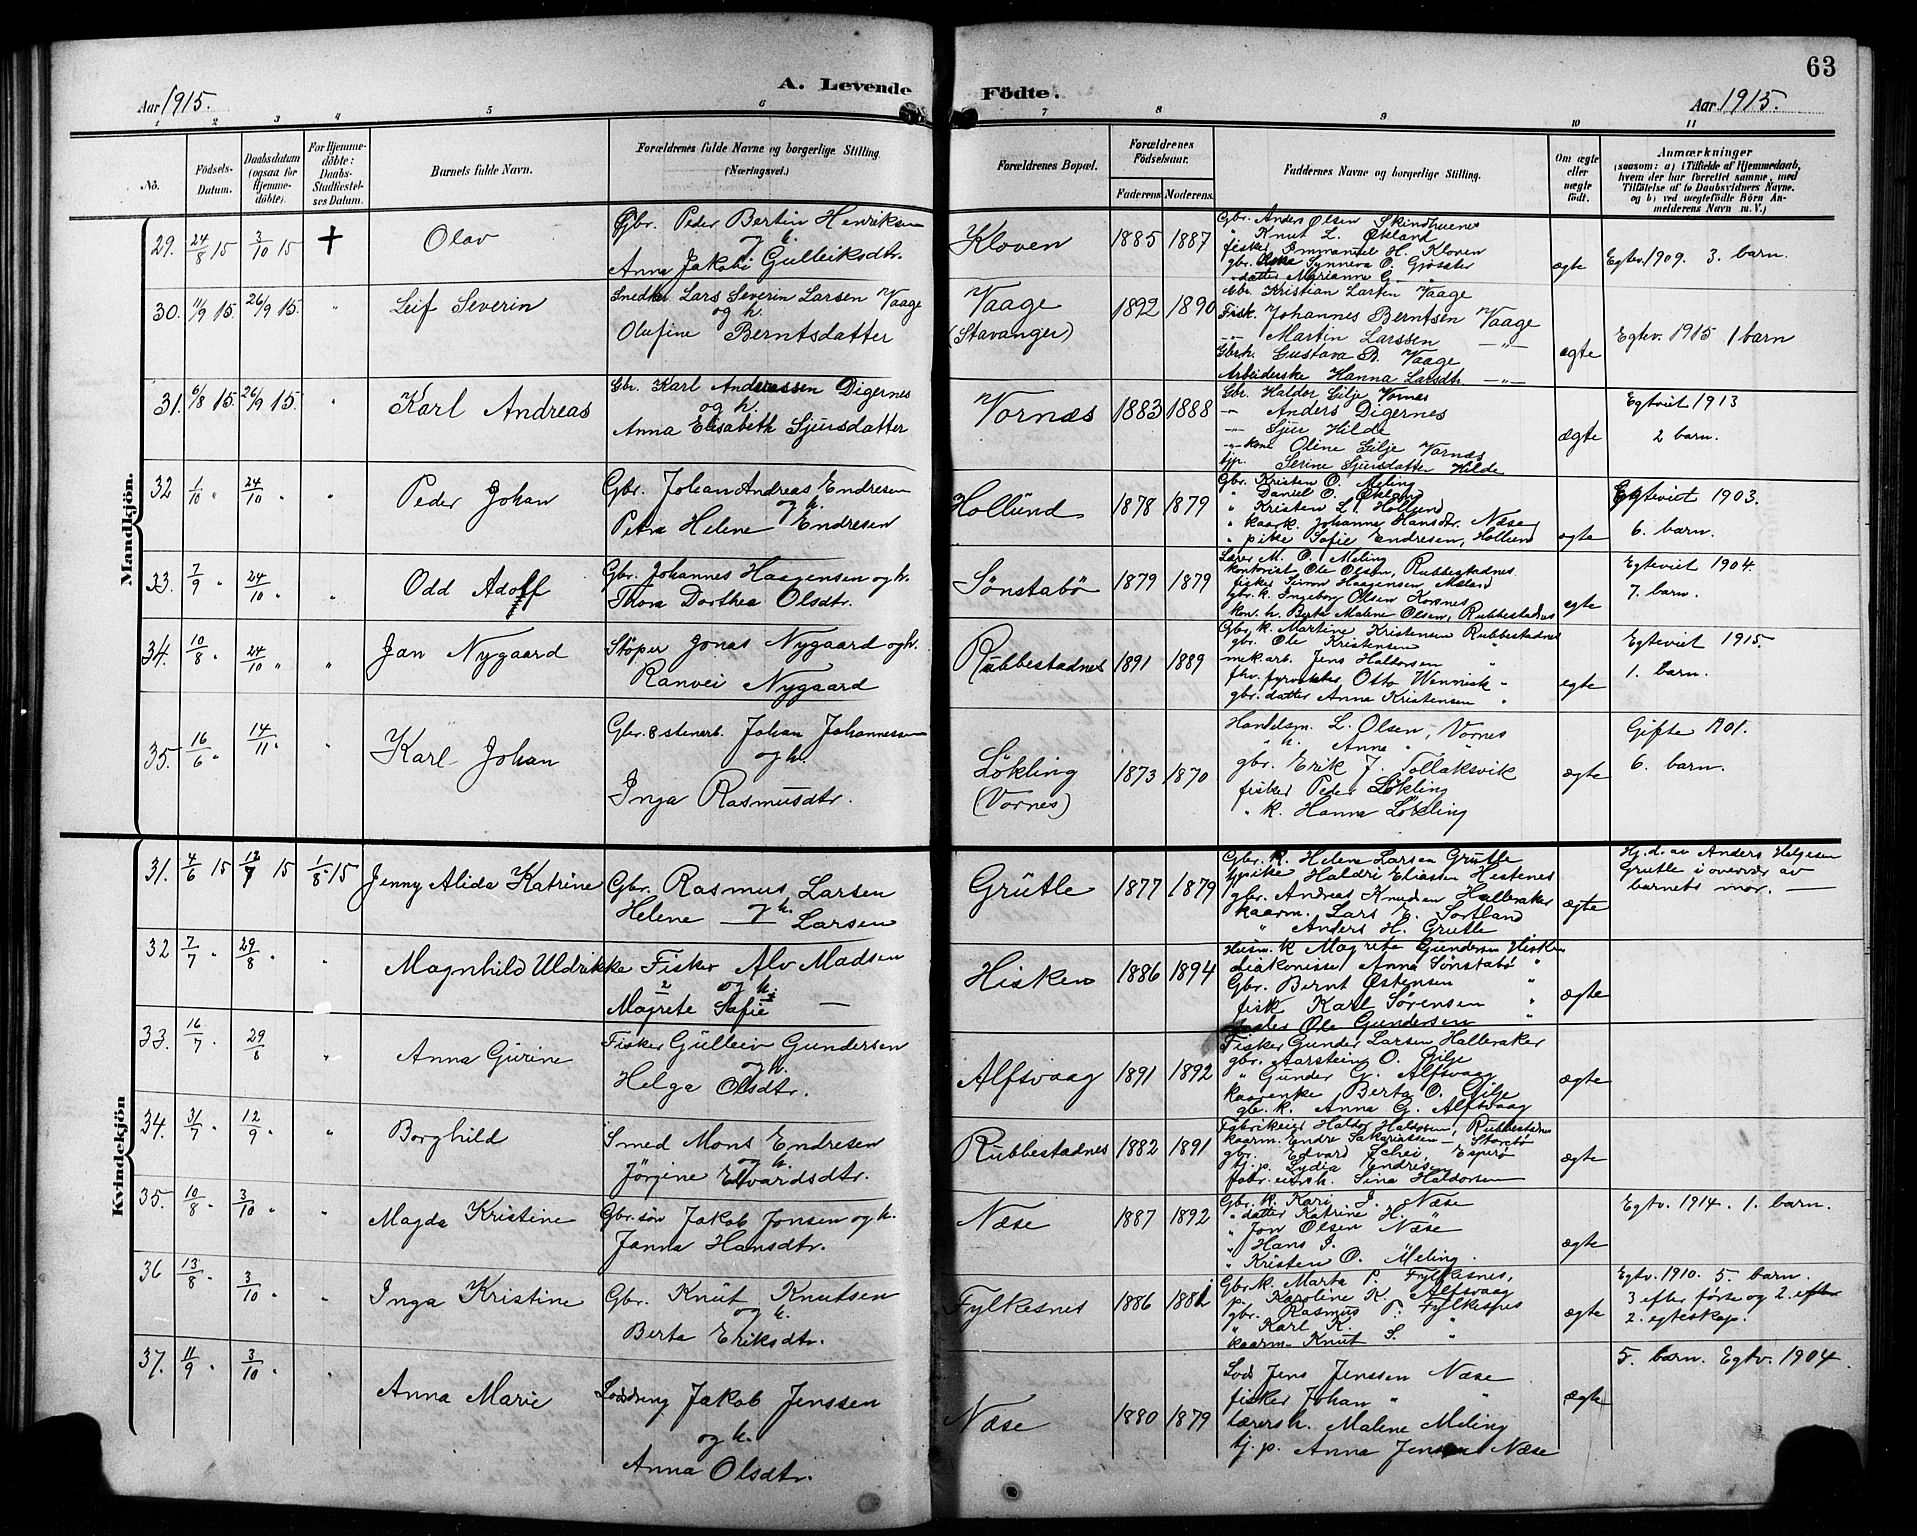 63
Aar 1915.
A. Levende
Födte.
Aar 1915.
1 2 3 4 5 6 7 8 9 10 11
No.
Födsels-Datum.
Daabsdatum (ogsaa for Hjemme-döbte).
For Hjemme-döbte: Daabs-Stadfæstel-ses Datum.
Barnets fulde Navn.
Forældrenes fulde Navne og borgerlige Stilling. (Næringsvei.)
Forældrenes Bopæl.
Forældrenes Födselsaar.
Faderens Moderens.
Faddernes Navne og borgerlige Stilling.
Om ægte eller uægte födt.
Anmærkninger
(saasom: a) i Tilfælde af Hjemmedaab,
hvem der har forrettet samme, med
Tilföielse af to Daabsvidners Navne.
og b) ved uægtefödte Börn An-
melderens Navn m. V.)
Mandkjön.
29. 24/8 15 3/10 15 + Olav
Gbr. Peder Bertin Henriksen
og h.
Anna Jakobi Gulleiksdtr.
Kloven 1885 1887
Gbr. Anders Olsen Skindhuene
" Knut L. Økland
fisker Emmanuel H. Kloven
gbr. Synneva O. Gjøsæter
" datter Marianne G.
ægte
Egtev. 1909. 3. barn.
30. 11/9 15. 26/9 15. " Leif Severin
Snedker Lars Severin Larsen Vaage
og h.
Olufine Berntsdatter
Vaage
(Stavanger)
1892 1890
Gbr. Kristian Larsen Vaage
Fisk. Johannes Berntsen Vaage
-"- Martin Larssen -"-
Gbrh. Gustava B. Vaage
Arbeiderske Hanna Larsdtr. -"-
ægte
Egtev. 1915 1 barn
31. 6/8 15. 26/9 15. " Karl Andreas
Gbr. Karl Anderssen Digernes
og h.
Anna Elisabeth Sjursdatter
Vornæs 1883 1888
Gbr. Haldor Gilje Vornæs
-"- Anders Digernes
-"- Sjur Hilde
-"- kone Oline Gilje Vornæs
tjp. Serine Sjursdatter Hilde
ægte
Egtviet 1913
2 barn.
32 1/10 " 24/10 " " Peder Johan
Gbr. Johan Andreas Endresen
og h.
Petra Helene Endresen
Hollund 1878 1879
Gbr. Kristen O. Meling
" Daniel O. Økland
" Kristen L. Hollund
" kaark. Johanna Hansdtr. Næse
" pike Sofie Endresen, Hollund
egte
Egteviet 1903.
6. barn.
33. 7/9 " 24/10 " " Odd Adolf
Gbr. Johannes Haagensen og h.
Thora Dorthea Olsdtr.
Sønstabø 1879 1879
Lærer M. O. Meling
kontorist Ole Olsen, Rubbestadnes
fisker Simon Haagensen Mæland
gbr. k. Ingeborg Olsen Korsnes
kon. h. Berta Malene Olsen, Rubbestadnes
egte
Egteviet 1904.
7. barn.
34. 10/8 " 24/10 " " Jan Nygaard
Støper Jonas Nygaard og h.
Ranvei Nygaard
Rubbestadnes 1891 1889
Gbr. k. Martine Kristensen Rubbestadnes
gbr. Ole Kristensen "
mek.arb. Jens Haldorsen "
fhv. fyrvokter Otto Wennick "
gbr. datter Anna Kristensen "
egte
Egteviet 1915.
1. barn.
35. 16/6 " 14/11 " " Karl Johan
Gbr. & stenarb. Johan Johannessen
og h.
Inga Rasmusdtr.
Løkling
(Vornes)
1873 1870
Handelsm. L. Olsen, Vornes
" h. Anna " "
gbr. Erik J. Tollaksvik
fisker Peder Løkling
" k. Hanna Løkling
ægte
Gifte 1901.
6. barn.
Kvindekjön
31. 4/6 15 12/7 15 1/8 15 Jenny Alida Katrine
Gbr. Rasmus Larsen
og h.
Helene Larsen
Grutle 1877 1879
Gbr. k. Helene Larsen Grutle
Gpike Haldri Eliassen Hestenes
gbr. Andreas Knudsen Hallaraker
kaarm. Lars E. Sortland
" Anders H. Grutle
ægte
Hj. d. av Anders Helgesen
Grutle i overvær av
barnets mor.
32 7/7 " 29/8 " " Magnhild Uldrikke
Fisker Alv Madsen
og h.
Magrete Sofie —
Hisken 1886 1894
Husm. k. Magrete Gundersen Hisken
diakonisse Anna Sønstabø "
Gbr. Bernt Østensen "
fisk Karl Sørensen "
Ole Gundersen "
ægte
33. 16/7 " 29/8 " Anna Gurine
Fisker Gullein Gundersen
og h.
Helga Olsdtr.
Alfsvaag 1891 1892
Fisker Gunder Larsen Hallaraker
gbr. Aarstein O. Gilje
" Gunder G. Alfsvaag
kaarenke Berta O. Gilje
gb. k. Anna G. Alfsvaag
ægte
34. 31/7 " 12/9 " " Borghild
Smed Mons Endresen
og h.
Jørgine Edvardsdtr.
Rubbestadnes 1882 1891
Fabrikeier Haldor Haldorsen, Rubbestadnes
kaarm. Endre Sakariassen, Storebø
gbr. Edvard Schei, Esperø
tj. p. Lydia Endresen
fabr. eiersh. Sina Haldorsen
ægte
35. 10/8 " 3/10 " " Magda Kristine
Gbr. søn Jakob Jonsen og h.
Janna Hansdtr.
Næse 1887 1892
Gbr. k. Kari J. Næse
" datter Katrine H. "
" Jon Olsen Næse
" Hans J.
" Kristen O. Meling.
ægte
Egtv. 1914. 1. barn.
36 13/8 " 3/10 " " Inga Kristine
Gbr. Knut Knutsen
og h.
Berta Eriksdtr.
Fylkesnes 1886 1881
Gbr. k. Marta P. Fylkesnes,
p. Karoline K. Alfsvaag
gbr. Rasmus P. Fylkesnes
" Karl K. "
kaarm. Knut S. "
ægte
Egtv. 1910. 5. barn.
3 efter første og 2. efter
2. egteskap.
37. 11/9 " 3/10 " " Anna Marie
Losdreng Jakob Jenssen
og h.
Anna Olsdtr.
Næse 1880 1879
Lods Jens Jenssen Næse
fisker Johan " "
lærersh. Malene Meling
tj. p. Anna Jensen Næse
ægte
5. barn. Egtv. 1904.